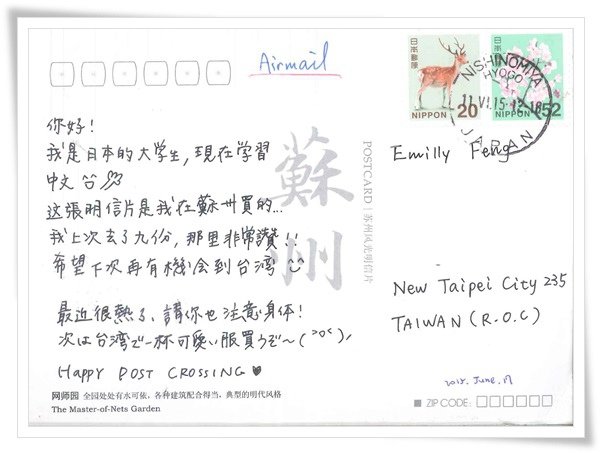 Airmail
日本郵便
20
NIPPON
日本郵便
52
NIPPON
NISHINOMIYA
HYOGO
11.VI.15 12-18
JAPAN
你好!
我是日本的大学生,現在学習
中文
这張明信片是我在蘇州買的...
我上次去了九份,那里非常讚!!
希望下次再有機会到台湾
最近很熱了、請你也注意身体!
次は台湾で一杯可愛い服買うぞ〜(>o<)、
HAPPY POST CROSSING ♥
蘇州
POSTCARD | 苏州风光明信片
Emilly Feng
New Taipei City 235
TAIWAN (R.O.C)
2015. June. 11
网师园 全园处处有水可依，各种建筑配合得当，典型的明代风格
The Master-of-Nets Garden
ZIP CODE: